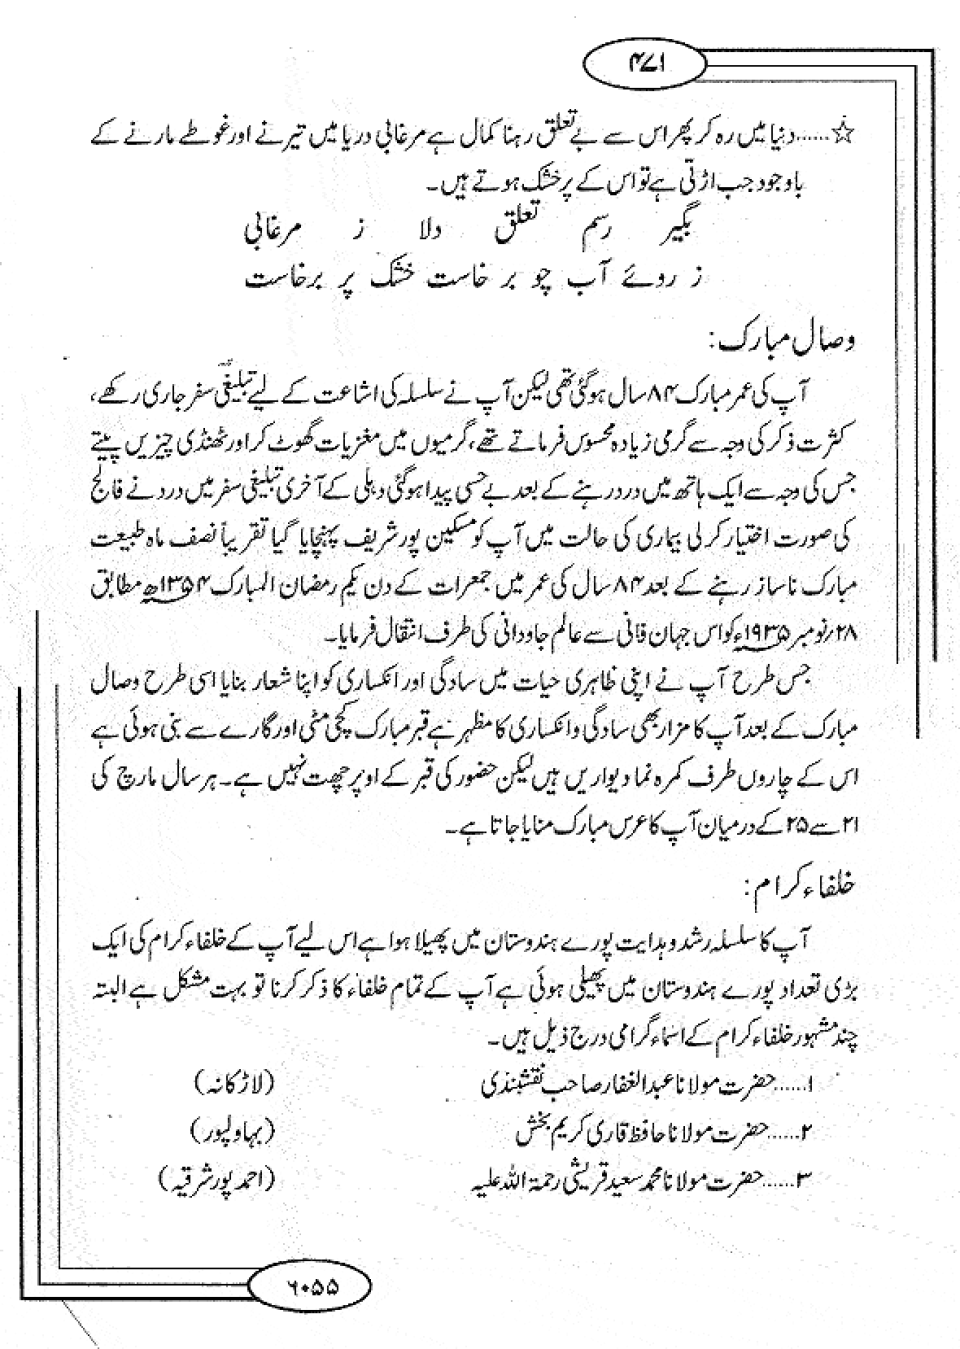 ۴۷۱
☆......دنیا میں رہ کر پھر اس سے بے تعلق رہنا کمال ہے مرغابی دریا میں تیرنے اور غوطے مارنے کے
باوجود جب اڑتی ہے تو اس کے پر خشک ہوتے ہیں۔
بگیر رسم تعلق دلا ز مرغابی
ز روئے آب چو بر خاست خشک پر برخاست
وصال مبارک:
آپ کی عمر مبارک ۸۴ سال ہو گئی تھی لیکن آپ نے سلسلہ کی اشاعت کے لیے تبلیغی سفر جاری رکھے،
کثرت ذکر کی وجہ سے گرمی زیادہ محسوس فرماتے تھے، گرمیوں میں مغزیات گھوٹ کر اور ٹھنڈی چیزیں پیتے
جس کی وجہ سے ایک ہاتھ میں درد رہنے کے بعد بے حسی پیدا ہو گئی دہلی کے آخری تبلیغی سفر میں درد نے فالج
کی صورت اختیار کر لی بیماری کی حالت میں آپ کو مسکین پور شریف پہنچایا گیا تقریباً نصف ماہ طبیعت
مبارک ناساز رہنے کے بعد ۸۴ سال کی عمر میں جمعرات کے دن یکم رمضان المبارک ۱۳۵۴ھ مطابق
۲۸/نومبر ۱۹۳۵ء کو اس جہان فانی سے عالم جاودانی کی طرف انتقال فرمایا۔
جس طرح آپ نے اپنی ظاہری حیات میں سادگی اور انکساری کو اپنا شعار بنایا اسی طرح وصال
مبارک کے بعد آپ کا مزار بھی سادگی و انکساری کا مظہر ہے قبر مبارک کچی مٹی اور گارے سے بنی ہوئی ہے
اس کے چاروں طرف کمرہ نما دیواریں ہیں لیکن حضور کی قبر کے اوپر چھت نہیں ہے۔ ہر سال مارچ کی
۲۱ سے ۲۵ کے درمیان آپ کا عرس مبارک منایا جاتا ہے۔
خلفاء کرام:
آپ کا سلسلہ رشد و ہدایت پورے ہندوستان میں پھیلا ہوا ہے اس لیے آپ کے خلفاء کرام کی ایک
بڑی تعداد پورے ہندوستان میں پھیلی ہوئی ہے آپ کے تمام خلفاء کا ذکر کرنا تو بہت مشکل ہے البتہ
چند مشہور خلفاء کرام کے اسماء گرامی درج ذیل ہیں۔
۱......حضرت مولانا عبدالغفار صاحب نقشبندی (لاڑکانہ)
۲......حضرت مولانا حافظ قاری کریم بخش (بہاولپور)
۳......حضرت مولانا محمد سعید قریشی رحمۃ اللہ علیہ (احمد پور شرقیہ)
۶۰۵۵